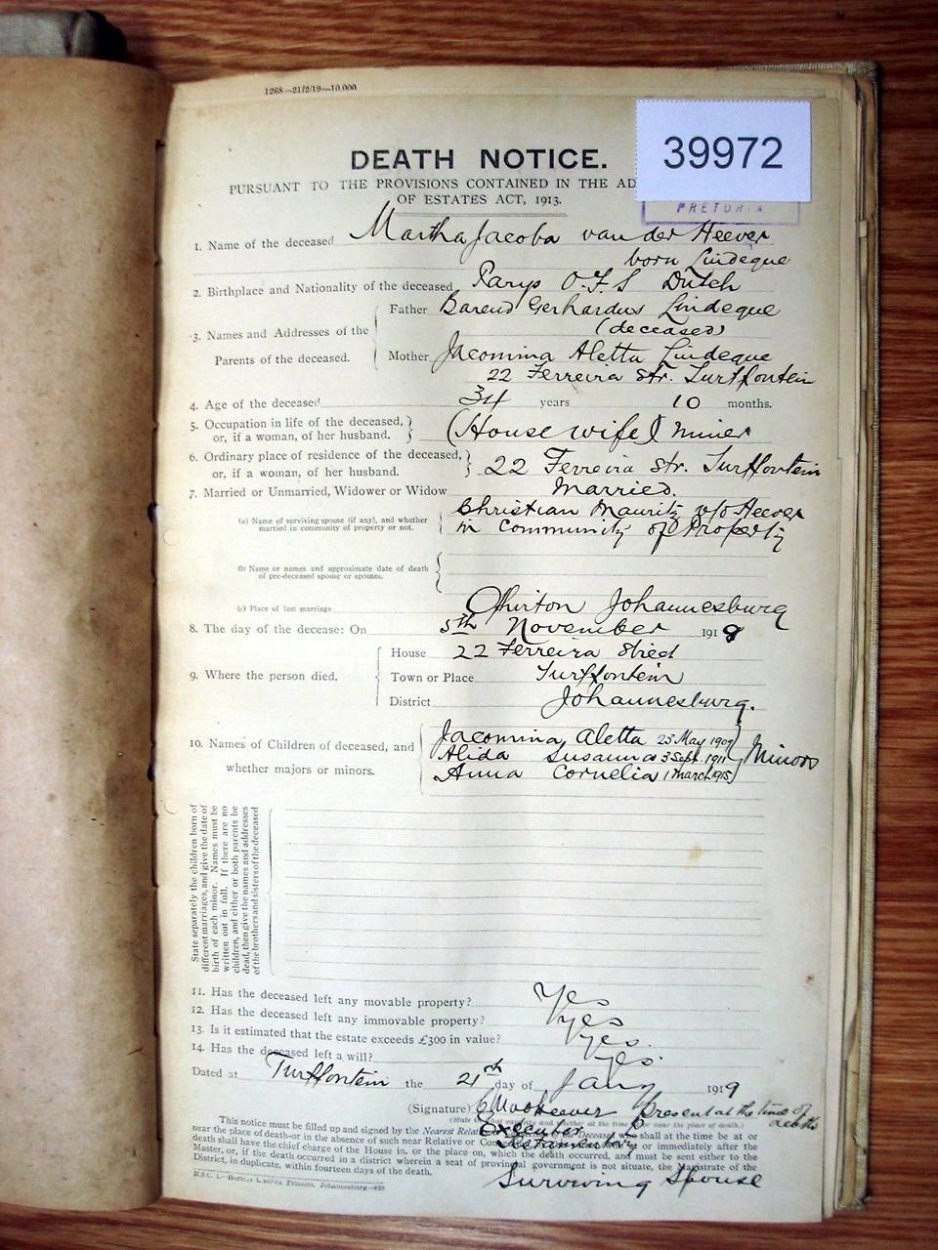 1268—21/2/19—10.000
39972
DEATH NOTICE.
PURSUANT TO THE PROVISIONS CONTAINED IN THE AD
OF ESTATES ACT, 1913.
PRETORIA
1. Name of the deceased Martha Jacoba van der Heever
born Lindeque
2. Birthplace and Nationality of the deceased Parys O.F.S Dutch
3. Names and Addresses of the Parents of the deceased.
Father Barend Gerhardus Lindeque
(deceased)
Mother Jacomina Aletta Lindeque
22 Ferreira Str. Turffontein
4. Age of the deceased 34 years 10 months.
5. Occupation in life of the deceased, or, if a woman, of her husband. (House wife) Miner
6. Ordinary place of residence of the deceased, or, if a woman, of her husband. 22 Ferreira Str. Turffontein
7. Married or Unmarried, Widower or Widow Married.
(a) Name of surviving spouse (if any), and whether married in community of property or not.
Christian Mauritz v/d Heever
in Community of Property
(b) Name or names and approximate date of death of pre-deceased spouse or spouses.
(c) Place of last marriage Ophirton Johannesburg
8. The day of the decease: On 5th November 1918
9. Where the person died.
House 22 Ferreira Street
Town or Place Turffontein
District Johannesburg.
10. Names of Children of deceased, and whether majors or minors.
Jacomina Aletta 25 May 1909
Alida Susanna 3 Sept. 1911 Minors
Anna Cornelia 1 March 1915
State separately the children born of different marriages, and give the date of birth of each minor. Names must be written out in full. If there are no children, and either or both parents be dead, then give the names and addresses of the brothers and sisters of the deceased
11. Has the deceased left any movable property? Yes
12. Has the deceased left any immovable property? yes
13. Is it estimated that the estate exceeds £300 in value? yes.
14. Has the deceased left a will? yes.
Dated at Turffontein the 21 day of Jany 1919
(Signature) Present at the time of death
Executor
Testamentary
This notice must be filled up and signed by the Nearest Relative shall at the time be at or
near the place of death—or in the absence of such near Relative or or immediately after the
death shall have the chief charge of the House in, or the place on, which the death occurred, and must be sent either to the
Master, or, if the death occurred in a district wherein a seat of provincial government is not situate, the Magistrate of the
District, in duplicate, within fourteen days of the death.
Surviving Spouse